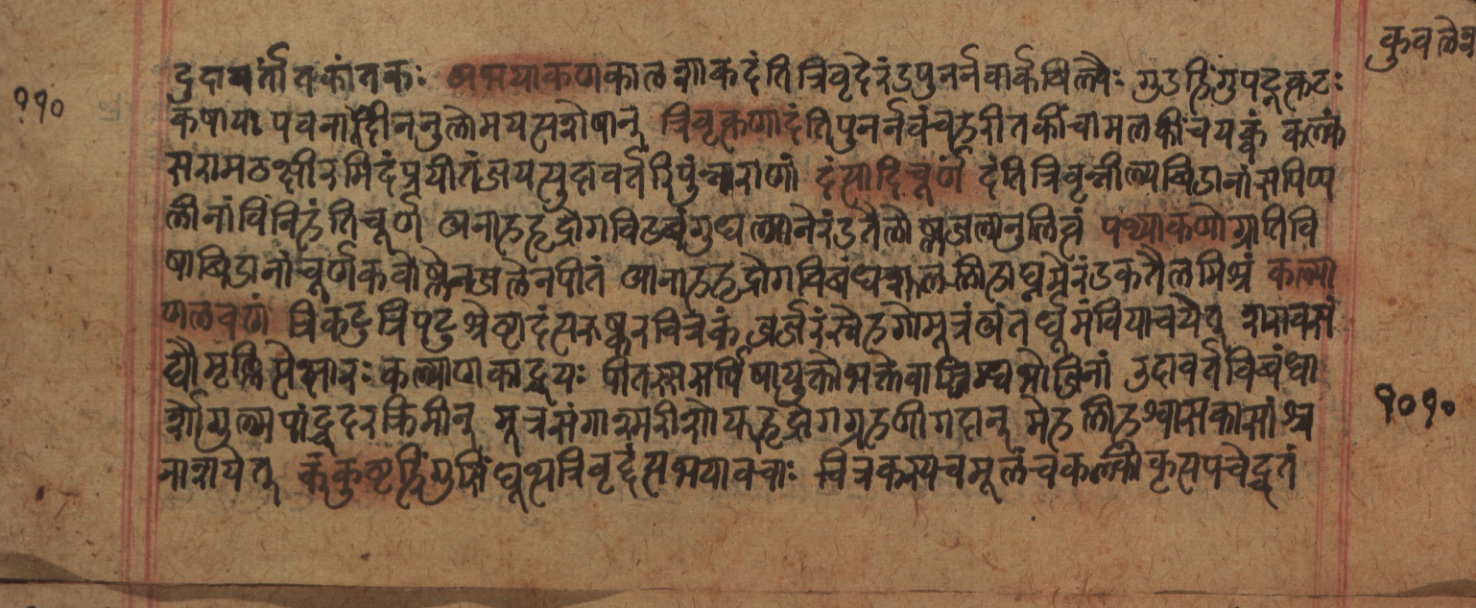 दुदावर्तांतकांतकः अभयाकणकालशाकदंतित्रिवृदेरंडपुनर्नवार्कबिल्वैः गुडहिंगुपटूत्कटः
कषायः पवनार्तीननुलोमयत्यशेषान् त्रिवृत्कणादंतिपुनर्नवंचहरीतकींचामलकींचयक्त्वं कल्कं
सरामठक्षीरमिदंप्रपीतंजयत्युदावर्तरिपुंन्नराणां दंत्यादिचूर्ण दंतित्रिवृन्नील्यबिडानांसपिप्प
लीनांविनिहंतिचूर्ण आनाहहृद्रोगविबंधगुल्मानेरंडतैलोष्णजलानुलिप्तं पथ्याकणोग्रातिवि
षाबिडानांचूर्णकवोष्णेनजलेनपीतं आनाहहृद्रोगविबंधशूलप्लीहाघ्नमेरंडकतैलमिश्रं कल्या
णलवणं त्रिकटुत्रिपटुश्रेष्ठादंत्यरुष्करचित्रकं जर्जरंस्नेहगोमूत्रंअंतर्धूमंविपाचयेत् शरावसं
धौमृल्लिप्तेक्षारः कल्याणकाह्वयः पीतस्ससर्पिषायुक्तोभक्तेवास्निग्धभोजिनां उदावर्तविबंधा
र्शोगुल्मपांडूदरक्रिमीन् मूत्रसंगाश्मरीशोफहृद्रोगग्रहणीगदान् मेहप्लीहश्वासकासांश्च
नाशयेत् कंकुष्ठहिंगुसिंधूत्थत्रिवृद्दंत्यभयावचाः चित्रकस्यचमूलंचकल्कीकृत्यपचेद्घृतं
११०
कुवलेश
१०१०